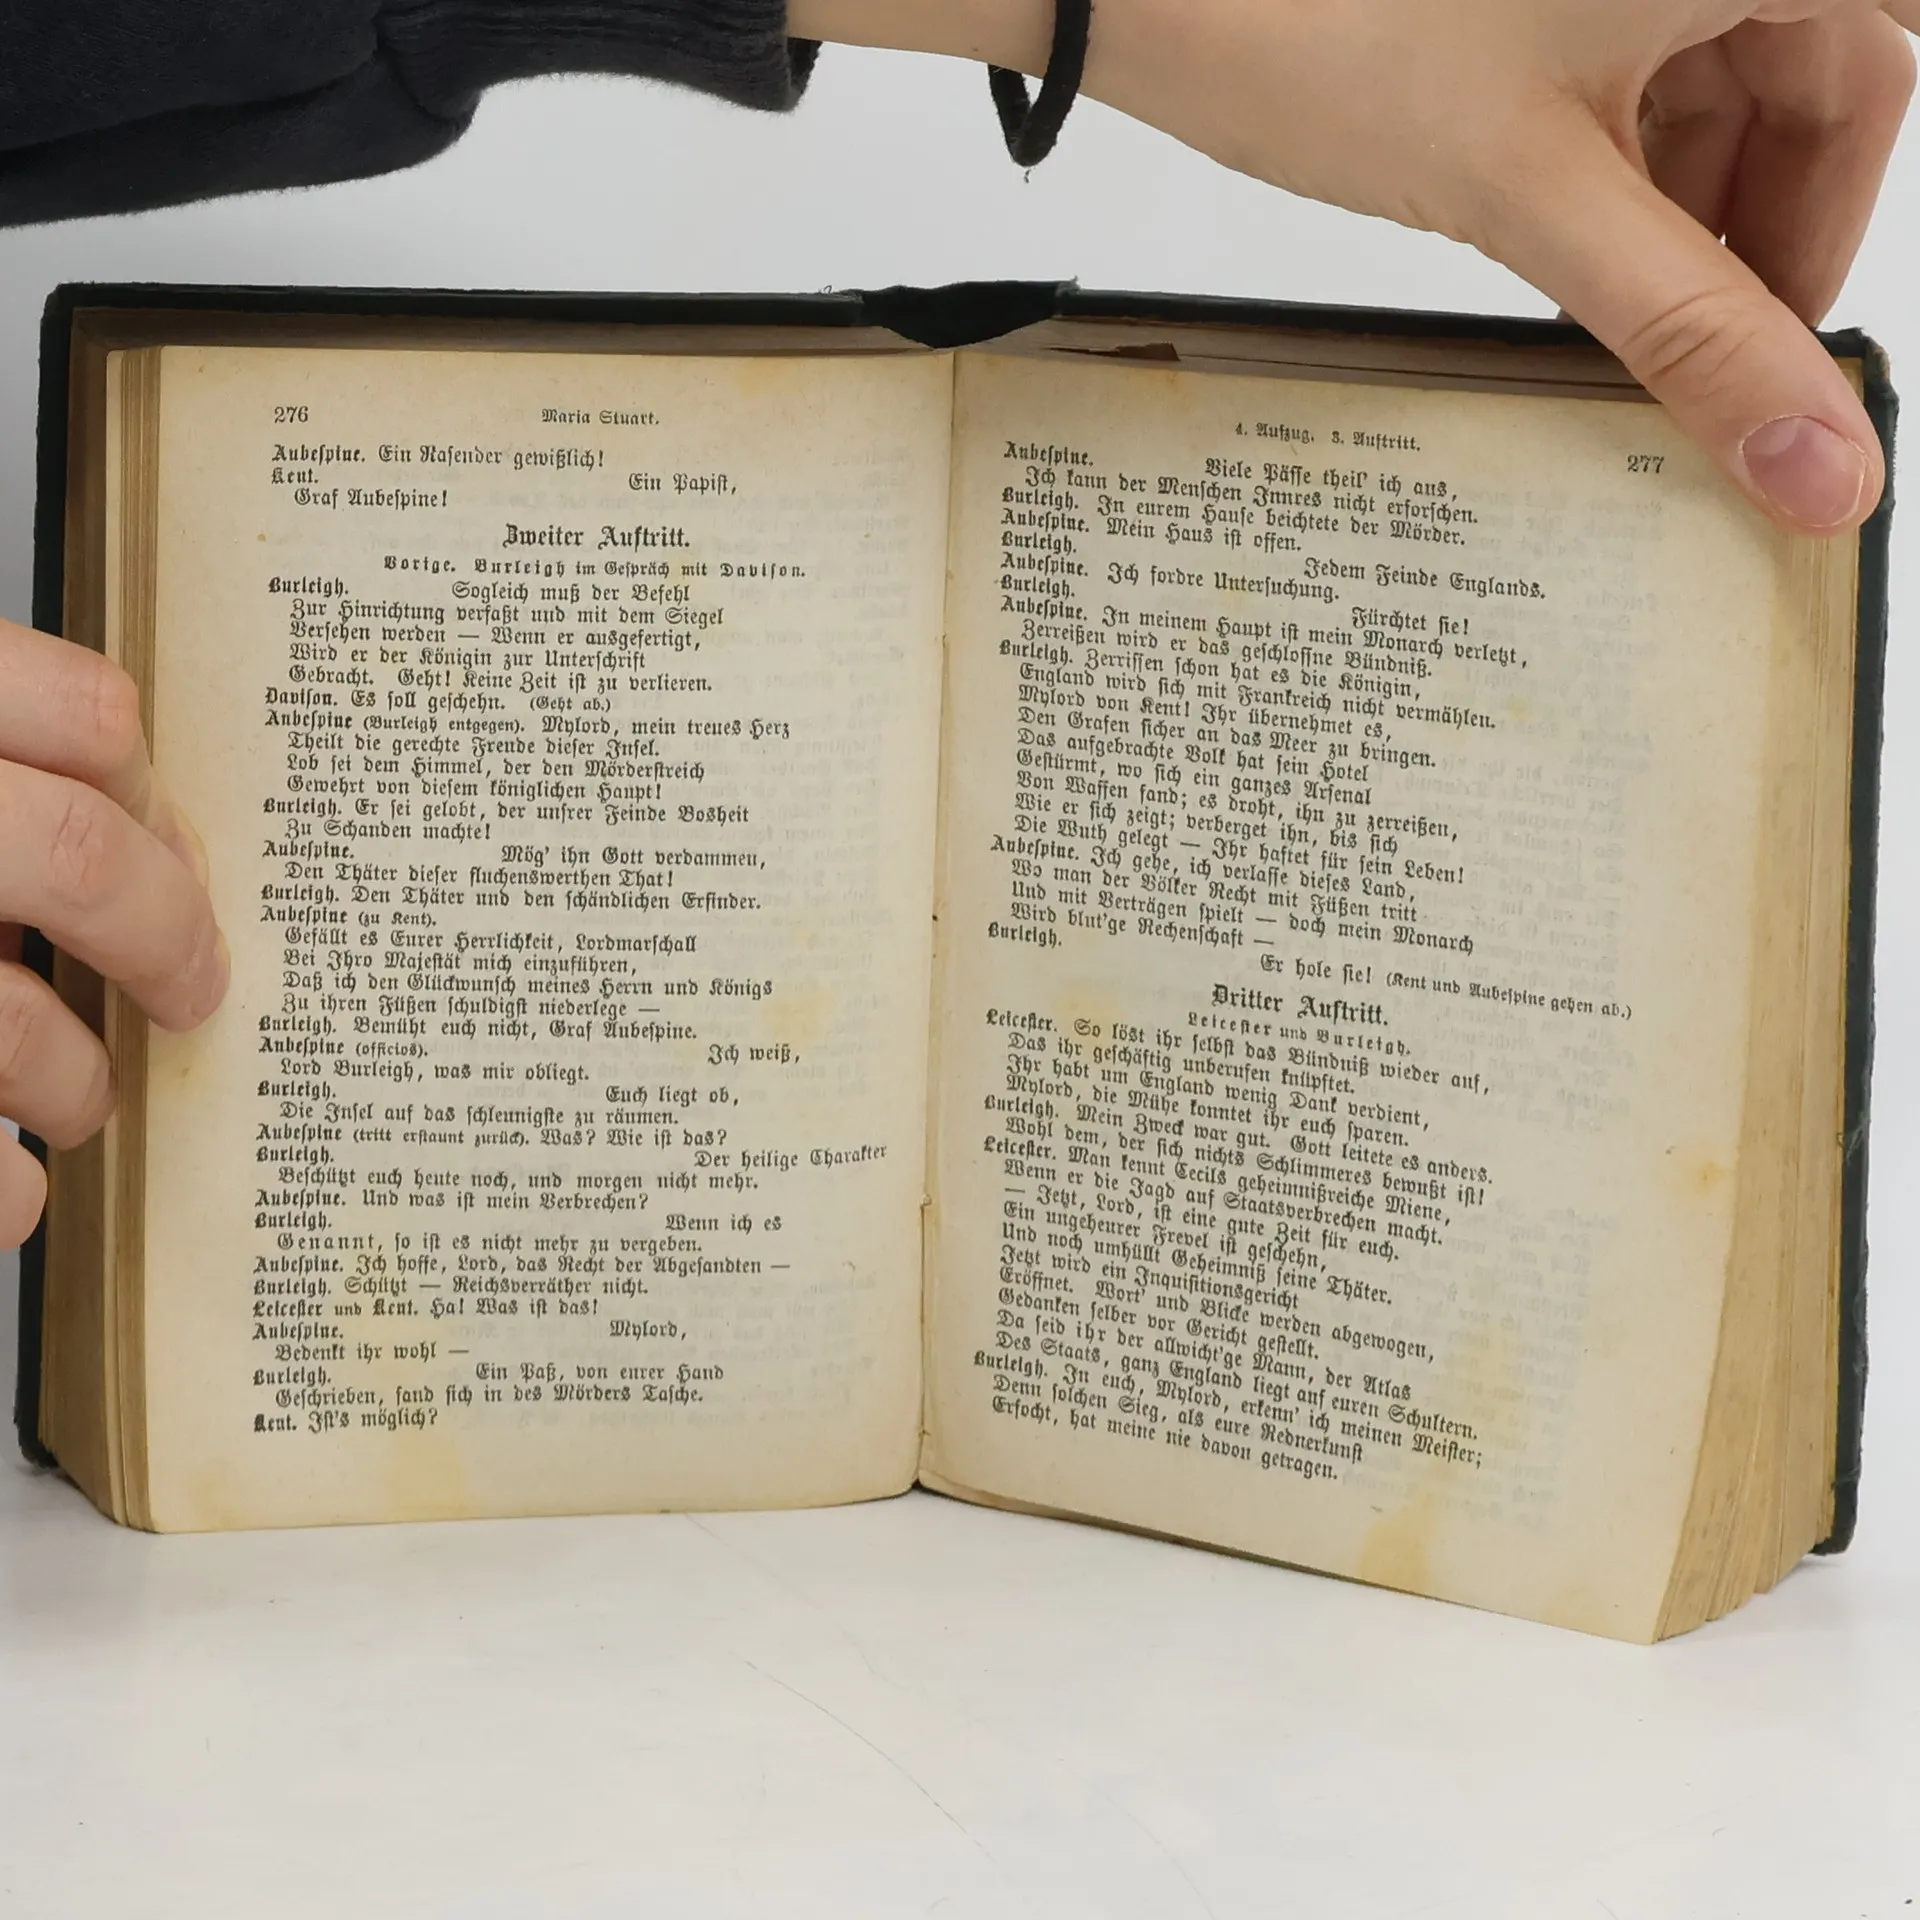 276
Maria Stuart.
Aubespine. Ein Rasender gewißlich!
Kent. Ein Papist,
Graf Aubespine!
Zweiter Auftritt.
Vorige. Burleigh im Gespräch mit Davison.
Burleigh. Sogleich muß der Befehl
Zur Hinrichtung verfaßt und mit dem Siegel
Versehen werden — Wenn er ausgefertigt,
Wird er der Königin zur Unterschrift
Gebracht. Geht! Keine Zeit ist zu verlieren.
Davison. Es soll geschehn. (Geht ab.)
Aubespine (Burleigh entgegen). Mylord, mein treues Herz
Theilt die gerechte Freude dieser Insel.
Lob sei dem Himmel, der den Mörderstreich
Gewehrt von diesem königlichen Haupt!
Burleigh. Er sei gelobt, der unsrer Feinde Bosheit
Zu Schanden machte!
Aubespine. Mög' ihn Gott verdammen,
Den Thäter dieser fluchenswerthen That!
Burleigh. Den Thäter und den schändlichen Erfinder.
Aubespine (zu Kent).
Gefällt es Eurer Herrlichkeit, Lordmarschall
Bei Ihro Majestät mich einzuführen,
Daß ich den Glückwunsch meines Herrn und Königs
Zu ihren Füßen schuldigst niederlege —
Burleigh. Bemüht euch nicht, Graf Aubespine.
Aubespine (officios). Ich weiß,
Lord Burleigh, was mir obliegt.
Burleigh. Euch liegt ob,
Die Insel auf das schleunigste zu räumen.
Aubespine (tritt erstaunt zurück). Was? Wie ist das?
Burleigh. Der heilige Charakter
Beschützt euch heute noch, und morgen nicht mehr.
Aubespine. Und was ist mein Verbrechen?
Burleigh. Wenn ich es
Genannt, so ist es nicht mehr zu vergeben.
Aubespine. Ich hoffe, Lord, das Recht der Abgesandten —
Burleigh. Schützt — Reichsverräther nicht.
Leicester und Kent. Ha! Was ist das!
Aubespine. Mylord,
Bedenkt ihr wohl —
Burleigh. Ein Paß, von eurer Hand
Geschrieben, fand sich in des Mörders Tasche.
Kent. Ist's möglich?
4. Aufzug. 3. Auftritt.
277
Aubespine. Viele Pässe theil' ich aus,
Ich kann der Menschen Innres nicht erforschen.
Burleigh. In eurem Hause beichtete der Mörder.
Aubespine. Mein Haus ist offen.
Burleigh. Jedem Feinde Englands.
Aubespine. Ich fordre Untersuchung.
Burleigh. Fürchtet sie!
Aubespine. In meinem Haupt ist mein Monarch verletzt,
Zerreißen wird er das geschloßne Bündniß.
Burleigh. Zerrissen schon hat es die Königin,
England wird sich mit Frankreich nicht vermählen.
Mylord von Kent! Ihr übernehmet es,
Den Grafen sicher an das Meer zu bringen.
Das aufgebrachte Volk hat sein Hotel
Gestürmt, wo sich ein ganzes Arsenal
Von Waffen fand; es droht, ihn zu zerreißen,
Wie er sich zeigt; verberget ihn, bis sich
Die Wuth gelegt — Ihr haftet für sein Leben!
Aubespine. Ich gehe, ich verlasse dieses Land,
Wo man der Völker Recht mit Füßen tritt
Und mit Verträgen spielt — doch mein Monarch
Wird blut'ge Rechenschaft —
Burleigh. Er hole sie! (Kent und Aubespine gehen ab.)
Dritter Auftritt.
Leicester und Burleigh.
Leicester. So löst ihr selbst das Bündniß wieder auf,
Das ihr geschäftig unberufen knüpftet.
Ihr habt um England wenig Dank verdient,
Mylord, die Mühe konntet ihr euch sparen.
Burleigh. Mein Zweck war gut. Gott leitete es anders.
Wohl dem, der sich nichts Schlimmeres bewußt ist!
Leicester. Man kennt Cecils geheimnißreiche Miene,
Wenn er die Jagd auf Staatsverbrechen macht.
— Jetzt, Lord, ist eine gute Zeit für euch.
Ein ungeheurer Frevel ist geschehn,
Und noch umhüllt Geheimniß seine Thäter.
Jetzt wird ein Inquisitionsgericht
Eröffnet. Wort' und Blicke werden abgewogen,
Gedanken selber vor Gericht gestellt.
Da seid ihr der allwicht'ge Mann, der Atlas
Des Staats, ganz England liegt auf euren Schultern.
Burleigh. In euch, Mylord, erkenn' ich meinen Meister;
Denn solchen Sieg, als eure Rednerkunst
Erfocht, hat meine nie davon getragen.